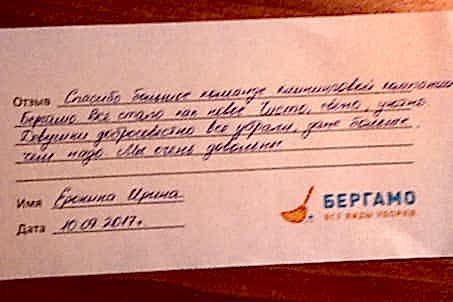 Отзыв Спасибо большое команде клининговой компании
Бергамо Все стало как новое Чисто, свежо, уютно
Девушки добросовестно все убрали, даже больше,
чем надо Мы очень довольны
Имя Ирина
Дата 10.09.2017г.
БЕРГАМО
ВСЕ ВИДЫ УБОРКИ